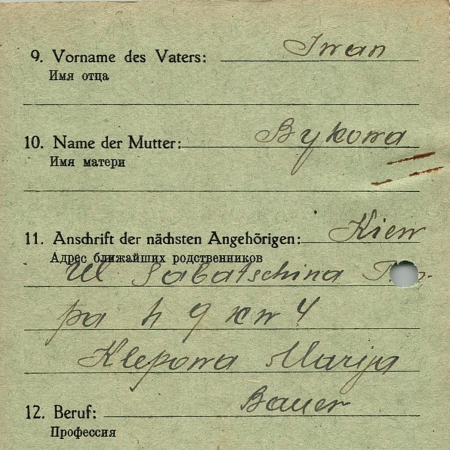 9. Vorname des Vaters: Iwan
Имя отца
10. Name der Mutter: Bykowa
Имя матери
11. Anschrift der nächsten Angehörigen: Kiew
Адрес ближайших родственников
Ul Sabatschina
pa h 9 kw 4
Klepowa Marija
12. Beruf: Bauer
Профессия